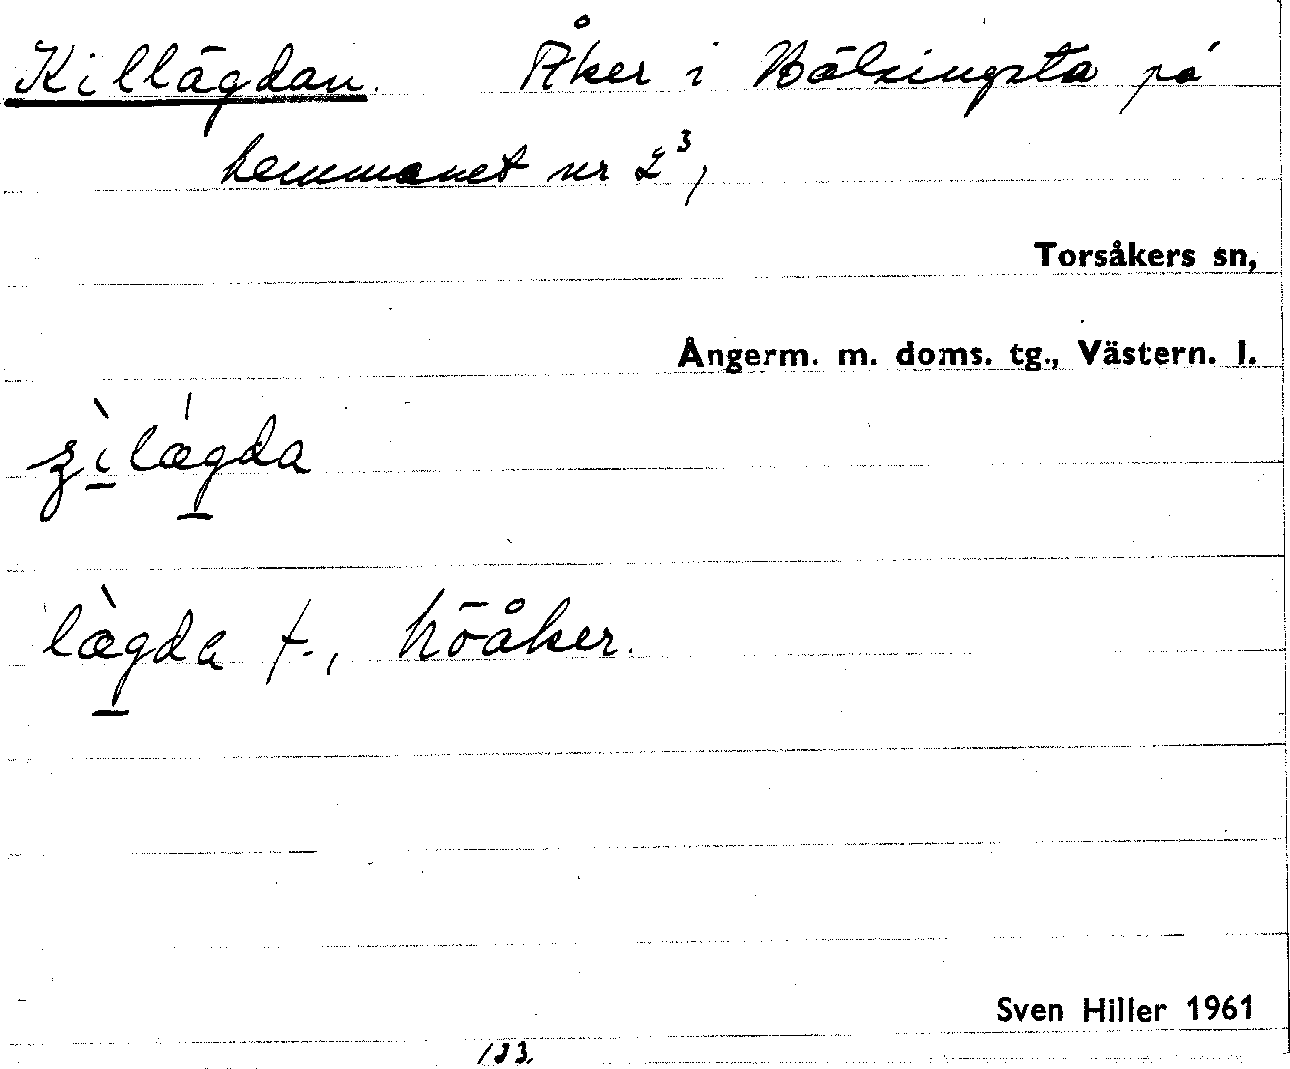 Killägdan. Åker i Bölsingsta på
hemmanet nr 2³,
Torsåkers sn,
Ångerm. m. doms. tg., Västern. l.
lægda f., höåker.
Sven Hiller 1961